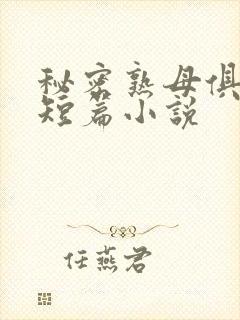 秘密熟母俱
短篇小说
任燕君